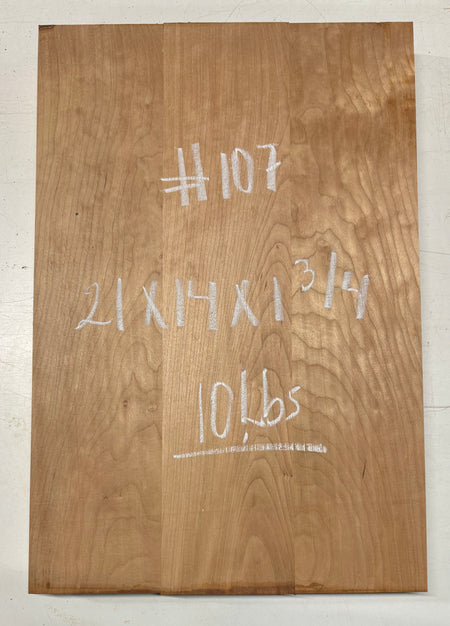 #107
21X14X1 3/4
10Lbs